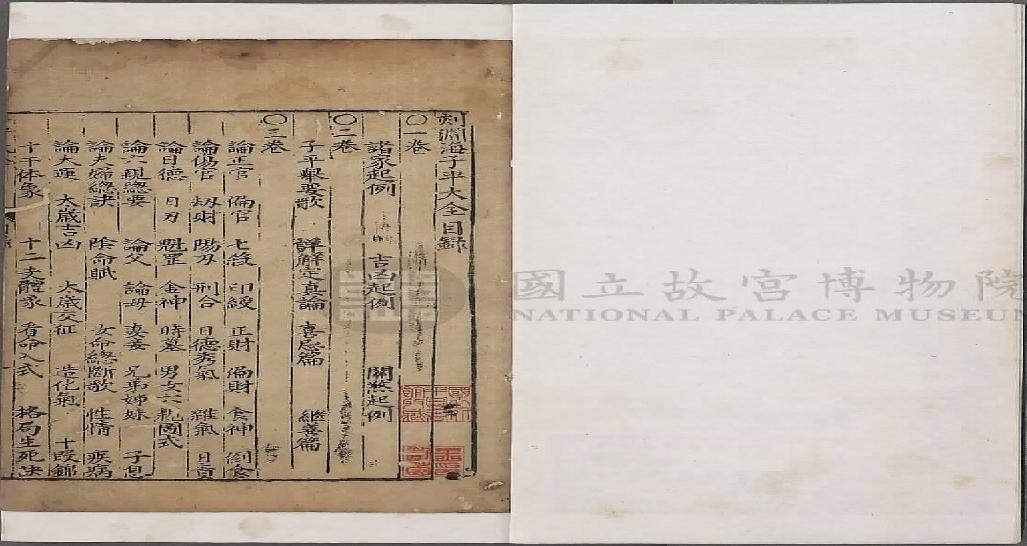 刻淵海子平大全目錄
○一卷
諸家起例 吉凶起例 關煞起例
○二卷
子平舉要歌 詳解定真論 喜忌篇 繼善篇
○三卷
論正官 偏官 七殺 印綬 正財 偏財 食神 倒食
論傷官 刼財 陽刃 刑合 日德秀氣 雜氣 日貴
論日德 日刃 魁罡 金神 時墓 男女六親圖式
論六親總要 論父 論母 妻妾 兄弟姊妹 子息
論夫婦總訣 陰命賦 女命總斷歌 性情 疾病
論大運 太歲吉凶 太歲交征 造化氣 十段錦
十干体象 十二支體象 看命入式 格局生死决
國立故宮博物院
NATIONAL PALACE MUSEUM